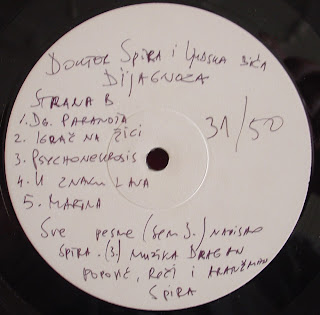 DOKTOR SPIRA i LJUDSKA BIĆA
DIJAGNOZA
STRANA B
1. DG. PARANOIA
2. IGRAČ NA ŽICI
31/50
3. PSYCHONEUROSIS
4. U ZNAKU LAVA
5. MARINA
Sve pesme (sem 3.) NAPISAO
SPIRA. (3.) MUZIKA DRAGAN
POPOVIĆ, REČI i ARANŽMAN
SPIRA